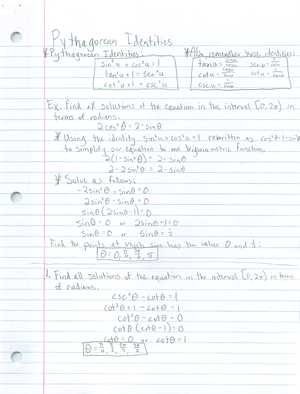 Pythagorean Identities
* Pythagorean Identities:
sin²u + cos²u = 1
tan²u + 1 = sec²u
cot²u + 1 = csc²u
* Also remember these identities:
tanu = sinu/cosu secu = 1/cosu
cotu = cosu/sinu cotu = 1/tanu
cscu = 1/sinu
Ex. Find all solutions of the equation in the interval [0, 2π) in
terms of radians.
2cos²θ = 2 - sinθ
* Using the identity sin²u + cos²u = 1 rewritten as cos²θ = 1 - sin²θ
to simplify our equation to one trigonometric function.
2(1 - sin²θ) = 2 - sinθ
2 - 2sin²θ = 2 - sinθ
* Solve as follows:
-2sin²θ + sinθ = 0
2sin²θ - sinθ = 0
sinθ(2sinθ - 1) = 0
sinθ = 0 or 2sinθ - 1 = 0
sinθ = 0 or sinθ = 1/2
Find the points at which sine has the value 0 and 1/2:
θ = 0, π/6, 5π/6, π
1. Find all solutions of the equation in the interval [0, 2π) in terms
of radians.
csc²θ - cotθ = 1
cot²θ + 1 - cotθ = 1
cot²θ - cotθ = 0
cotθ(cotθ - 1) = 0
cotθ = 0 or cotθ = 1
θ = π/4, π/2, 5π/4, 3π/2